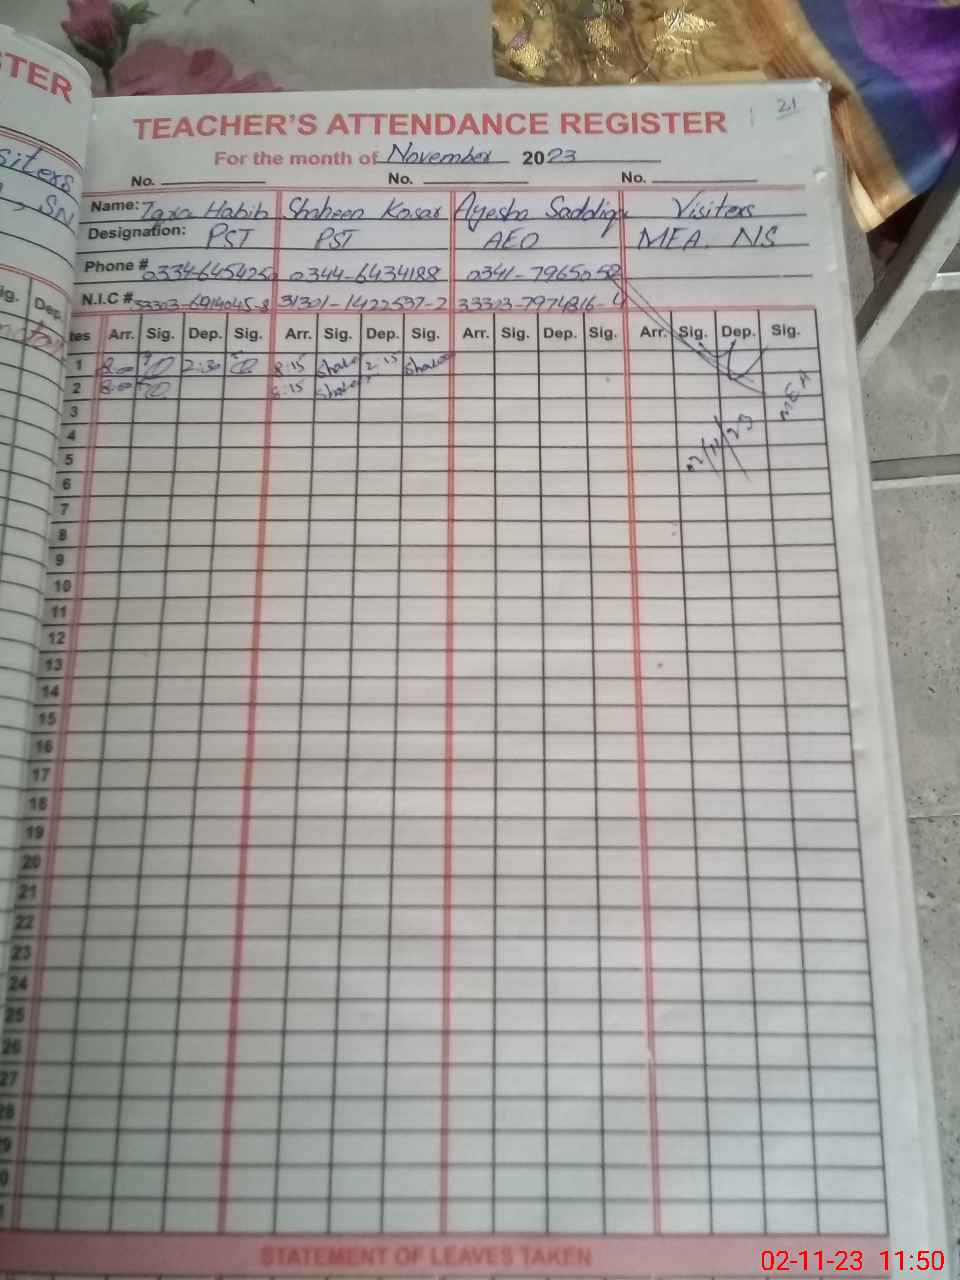 STER
siters
SN
ig. Dep.
21
TEACHER'S ATTENDANCE REGISTER
For the month of November 2023
No. No. No.
Name: Zara Habib Shaheen Kosar Ayesha Saddiqu Visiters
Designation: PST PST AEO MEA. NS
Phone # 0334-6454250 0344-6434188 0341-7965052
N.I.C # 33303-6914045-8 31301-1422537-2 33303-7974816-4
tes Arr. Sig. Dep. Sig. Arr. Sig. Dep. Sig. Arr. Sig. Dep. Sig. Arr. Sig. Dep. Sig.
1 8:00 2:30 8:15 Shake 2:15 Shake
2 8:00 8:15 Shake
MEA
02/11/23
3
4
5
6
7
8
9
10
11
12
13
14
15
16
17
18
19
20
21
22
23
24
25
26
27
28
9
0
1
STATEMENT OF LEAVES TAKEN
02-11-23 11:50